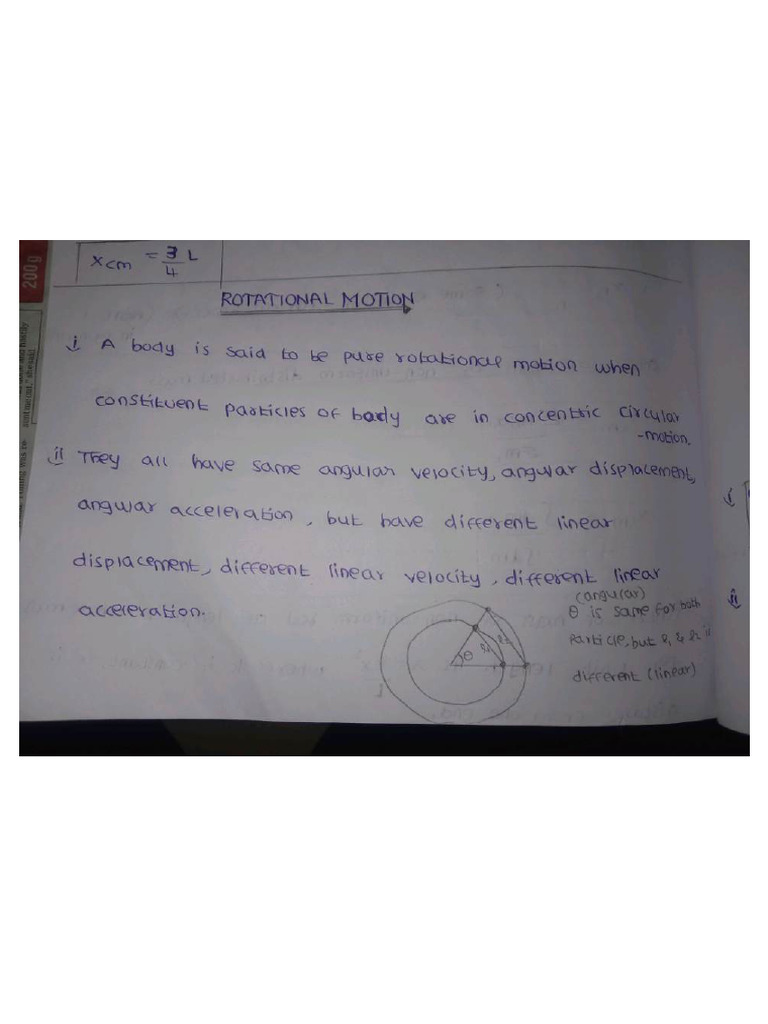 200g
xcm = 3/4 L
ROTATIONAL MOTION
i A body is said to be pure rotational motion when
constituent particles of body are in concentric circular
-motion.
ii They all have same angular velocity, angular displacement,
angular acceleration, but have different linear
displacement, different linear velocity, different linear
acceleration.
(angular)
θ is same for both
particle, but s₁ & s₂ is
different (linear)
θ s₁ s₂
i
ii